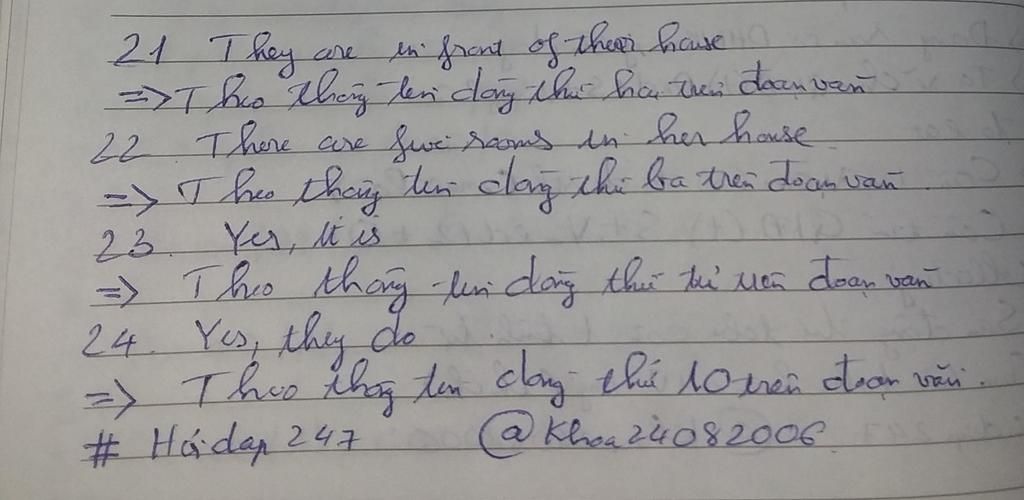 21 They are in front of their house
=> Theo thông tin dòng thứ hai trên đoạn văn
22 There are five rooms in her house
=> Theo thông tin dòng thứ ba trên đoạn văn
23. Yes, it is
=> Theo thông tin dòng thứ tư trên đoạn văn
24. Yes, they do
=> Theo thông tin dòng thứ 10 trên đoạn văn.
# Hỏi đap 247 @Khoa24082006